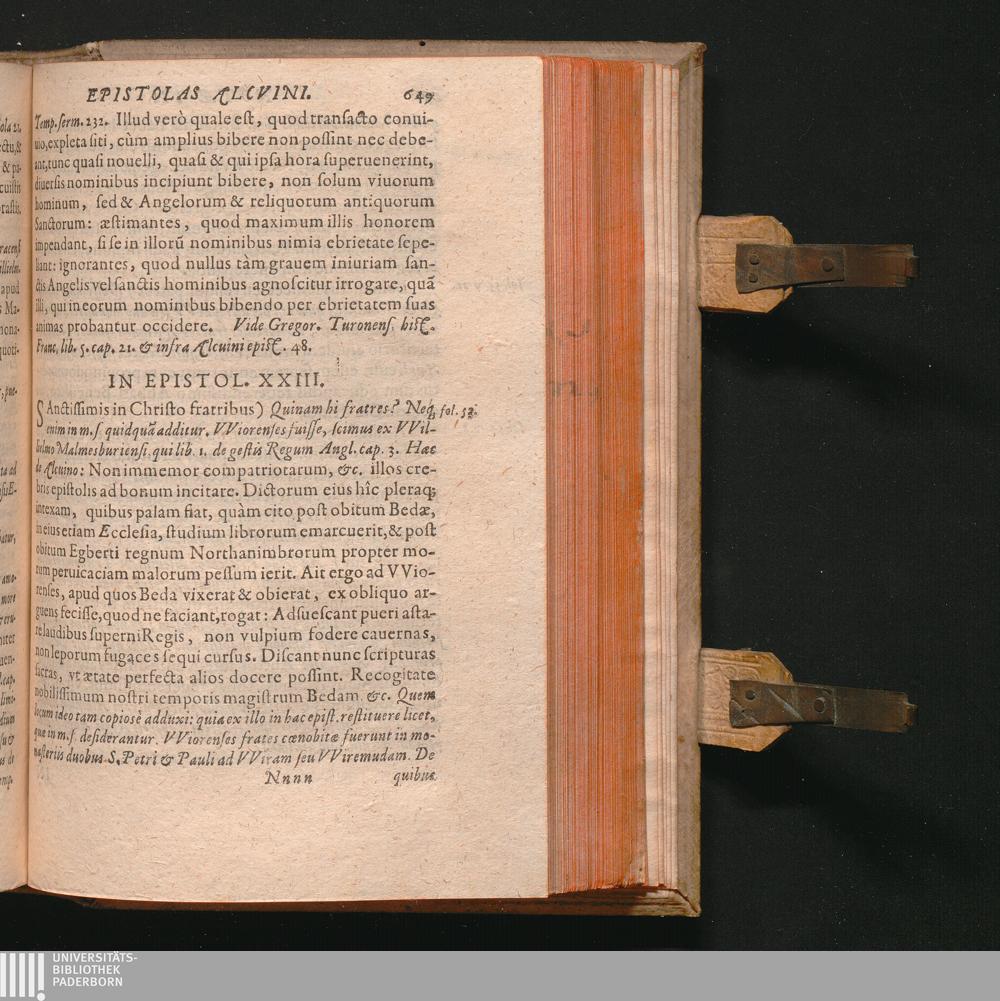 EPISTOLAS ÆLCVINI. 649
Temp. ſerm. 232. Illud verò quale eſt, quod tranſacto conui-
uio, expleta ſiti, cùm amplius bibere non poſſint nec debe-
ant, tunc quaſi nouelli, quaſi & qui ipſa hora ſuperuenerint,
diuerſis nominibus incipiunt bibere, non ſolum viuorum
hominum, ſed & Angelorum & reliquorum antiquorum
Sanctorum: æſtimantes, quod maximum illis honorem
impendant, ſi ſe in illorũ nominibus nimia ebrietate ſepe-
liant: ignorantes, quod nullus tàm grauem iniuriam ſan-
ctis Angelis vel ſanctis hominibus agnoſcitur irrogare, quã
illi, qui in eorum nominibus bibendo per ebrietatem ſuas
animas probantur occidere. Vide Gregor. Turonenſ. hiſt.
Franc. lib. 5. cap. 21. & infra Ælcuini epiſt. 48.
IN EPISTOL. XXIII.
SAnctiſſimis in Chriſto fratribus) Quinam hi fratres? Neq; fol. 52.
enim in m.ſ. quidquã additur. VViorenſes fuiſſe, ſcimus ex VVil-
helmo Malmesburienſi, qui lib. 1. de geſtis Regum Angl. cap. 3. Hæc
de Ælcuino: Non immemor compatriotarum, &c. illos cre-
bris epiſtolis ad bonum incitare. Dictorum eius hîc pleraq;
intexam, quibus palam fiat, quàm cito poſt obitum Bedæ,
in eius etiam Eccleſia, ſtudium librorum emarcuerit, & poſt
obitum Egberti regnum Northanimbrorum propter mo-
rum peruicaciam malorum peſſum ierit. Ait ergo ad VVio-
renſes, apud quos Beda vixerat & obierat, ex obliquo ar-
guens feciſſe, quod ne faciant, rogat: Adſueſcant pueri aſta-
re laudibus ſuperni Regis, non vulpium fodere cauernas,
non leporum fugaces ſequi curſus. Diſcant nunc ſcripturas
ſacras, vt ætate perfecta alios docere poſſint. Recogitate
nobiliſſimum noſtri temporis magiſtrum Bedam, &c. Quem
locum ideo tam copiosè adduxi: quia ex illo in hac epiſt. reſtituere licet,
quæ in m.ſ. deſiderantur. VViorenſes frates cœnobitæ fuerunt in mo-
naſteriis duobus S. Petri & Pauli ad VViram ſeu VViremudam. De
Nnnn quibus
UNIVERSITÄTS-
BIBLIOTHEK
PADERBORN